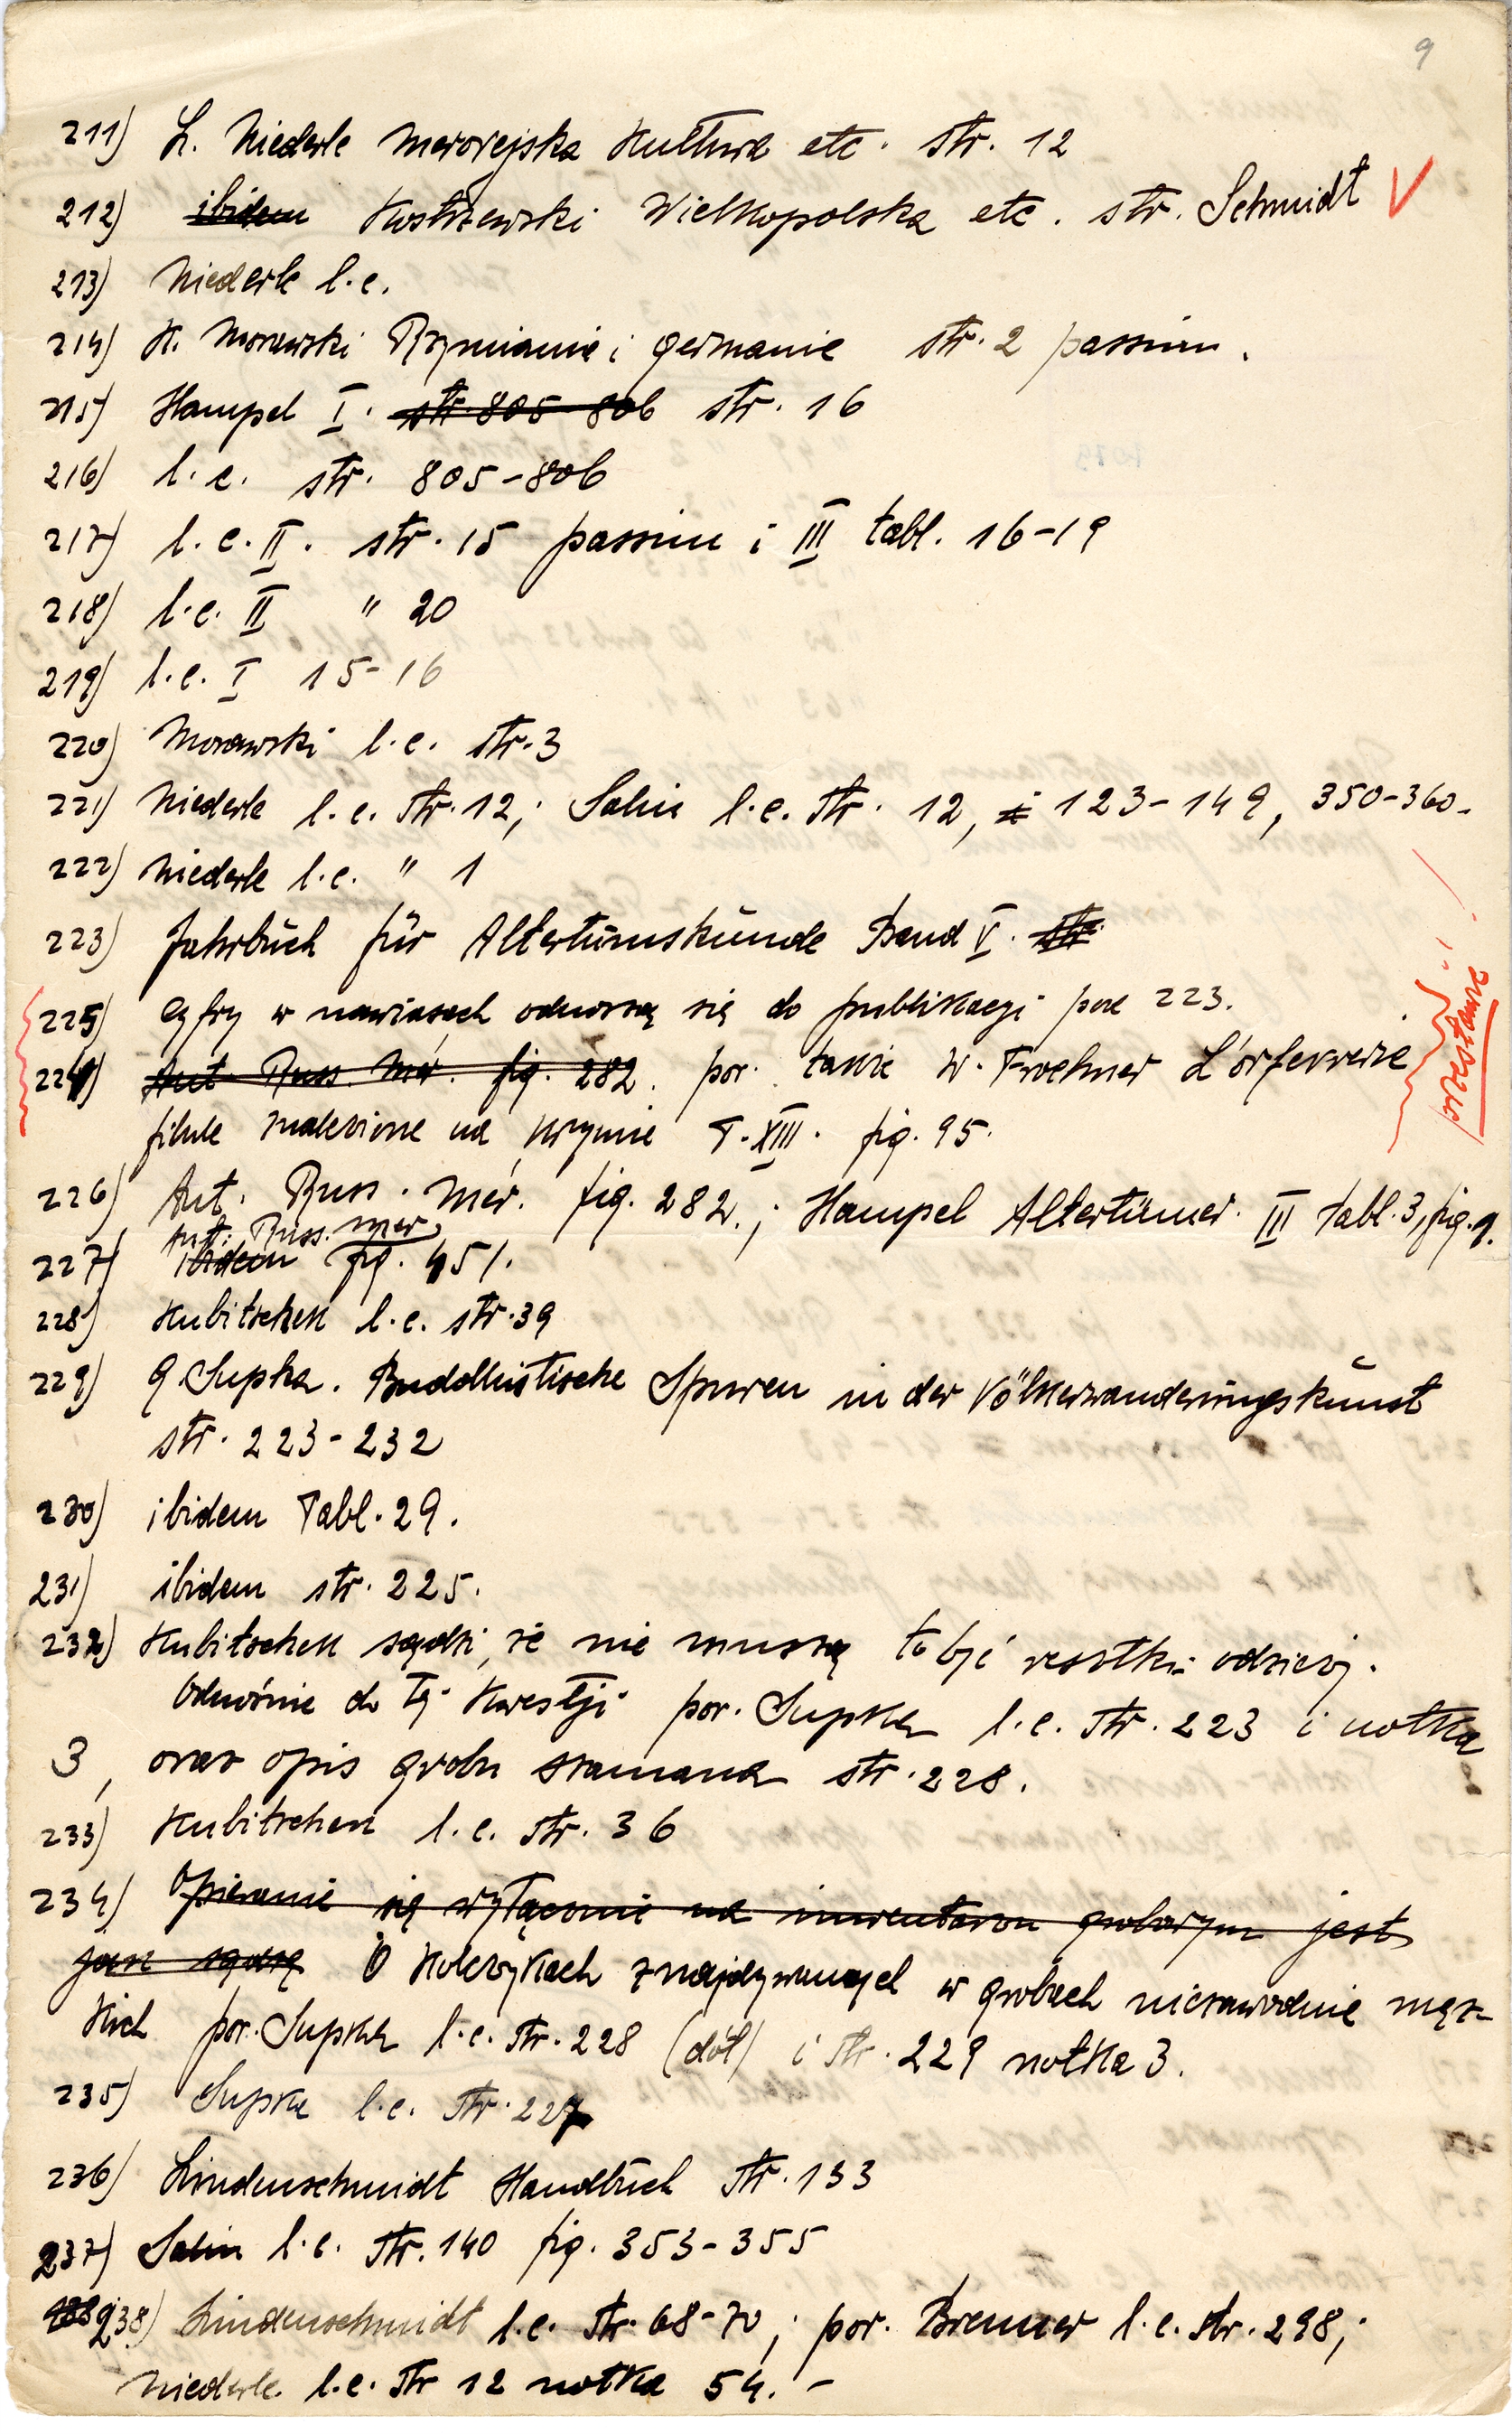 9
211) L. Niederle Merovejska Kultura etc. str. 12
212) ibidem Kostrzewski Wielkopolska etc. str. Schmidt V
213) Niederle l.c.
214) K. Morawski Rzymianie i germanie str. 2 passim.
215) Hampel I. str. 805-806 str. 16
216) l.c. str. 805-806
217) l.c. II. str. 15 passim i III tabl. 16-19
218) l.c. II " 20
219) l.c. I 15-16
220) Morawski l.c. str. 3
221) Niederle l.c. str. 12; Salin l.c. str. 12, i 123-149, 350-360.
222) Niederle l.c. " 1
223) Jahrbuch für Altertumskunde Band V. str.
225) Cyfry w nawiasach odnoszą się do publikacyi pod 223.
224) Ant. Russ. Mér. fig. 282. por. także W. Froehner L'orfevrerie
przestawić!
fibule znalezione na Krymie T. XIII. fig. 95.
226) Ant. Russ. Mér. fig. 282.; Hampel Altertümer. III tabl. 3, fig. 9.
Ant. Russ. mer.
227) ibidem fig. 451.
228) Kubitschek l.c. str. 39
229) G Supka. Buddhistische Spuren in der Völkerwanderungskunst
str. 223-232
230) ibidem Tabl. 29.
231) ibidem str. 225.
232) Kubitschek sądzi, że nie muszą to być resztki odzieży.
Odnośnie do tej kwestji por. Supka l.c. str. 223 i notka
3, oraz opis grobu szamana str. 228.
233) Kubitschek l.c. str. 36
234) Opieranie się wyłącznie na inwentarzu grobowym jest
jak sądzę O Kolczykach znajdywanych w grobach niezawodnie męz-
kich por. Supka l.c. str. 228 (dół) i str. 229 notka 3.
235) Supka l.c. str. 227
236) Lindenschmidt Handbuch str. 133
237) Salin l.c. str. 140 fig. 353-355
238) Lindenschmidt l.c. str. 68-70; por. Brenner l.c. str. 298;
Niederle. l.c. str 12 notka 54. -